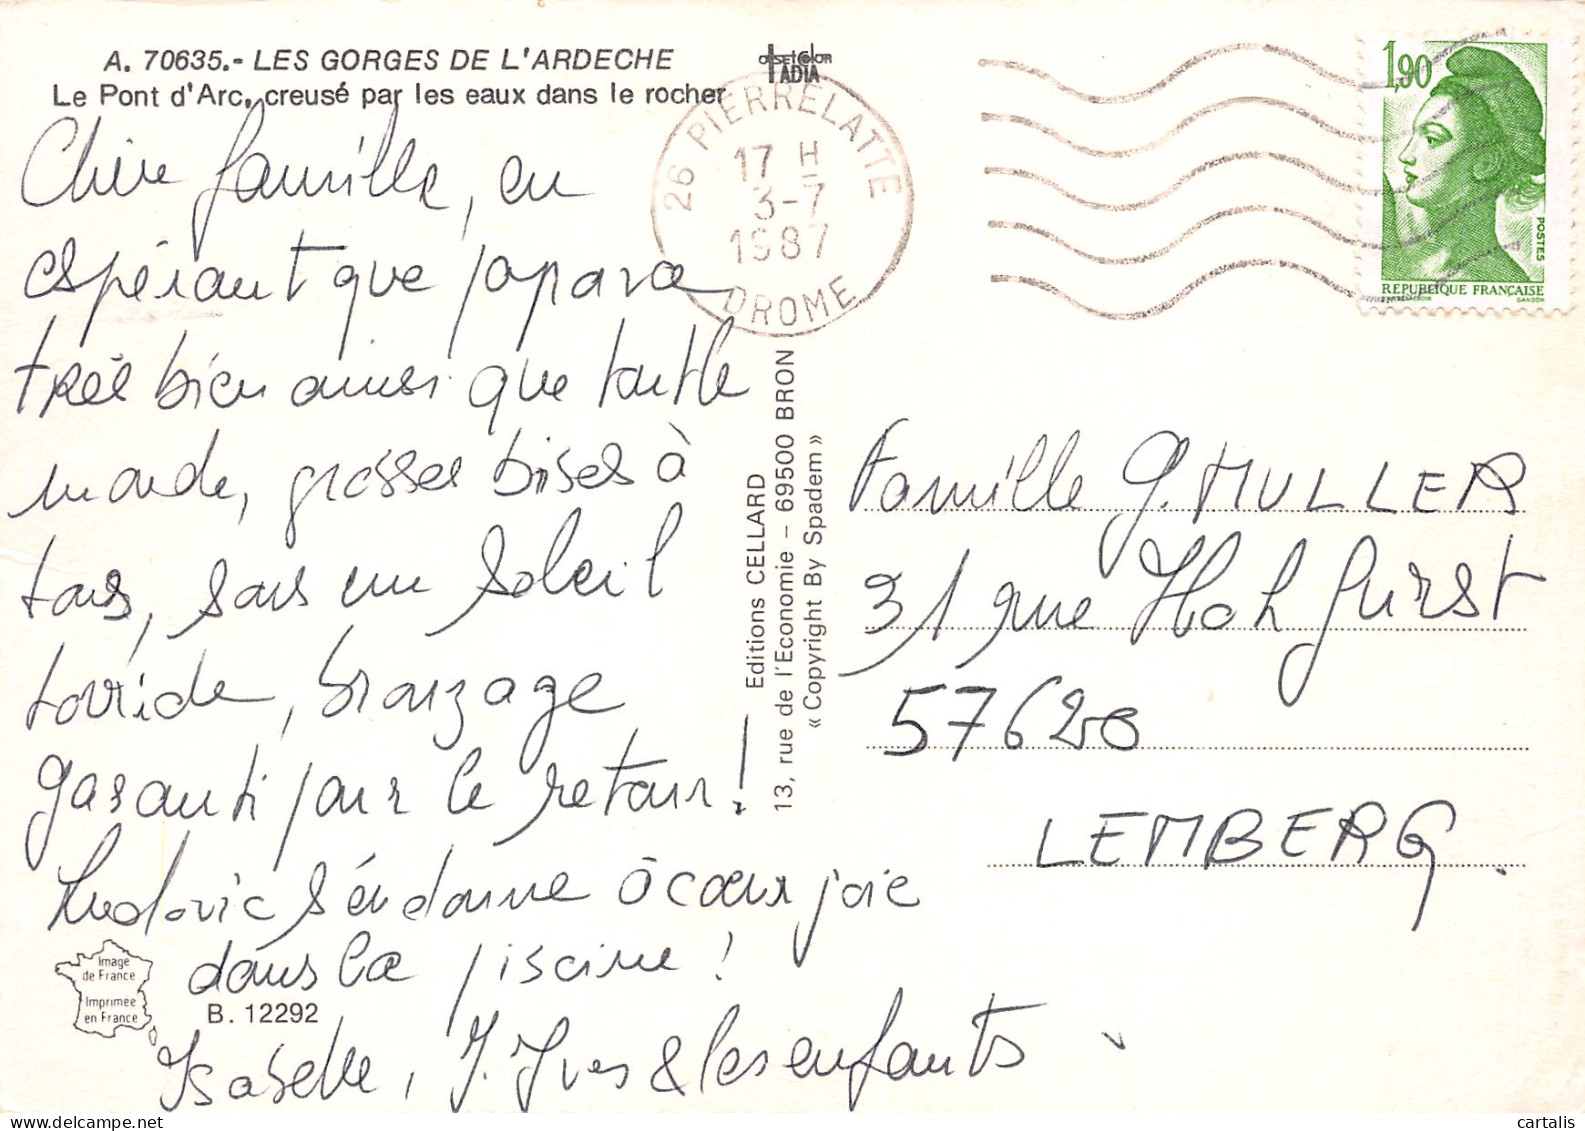 A. 70635.- LES GORGES DE L'ARDECHE
Le Pont d'Arc, creusé par les eaux dans le rocher
Chère famille, en
espérant que papa va
très bien ainsi que tout le
monde, grosses bises à
tous, sous un soleil
torride, bronzage
garanti pour le retour!
Ludovic s'en donne à cœur joie
dans la piscine!
Isabelle, J. Yves & les enfants
Image
de France
Imprimée
en France
B. 12292
OFFSETCOLOR
IADIA
26 PIERRELATTE
17 H
3-7
1987
DROME
Editions CELLARD
13, rue de l'Economie – 69500 BRON
« Copyright By Spadem »
1,90
POSTES
REPUBLIQUE FRANÇAISE
GANDON
Famille G. MULLER
31 rue Hohfurst
57620
LEMBERG
cartalis